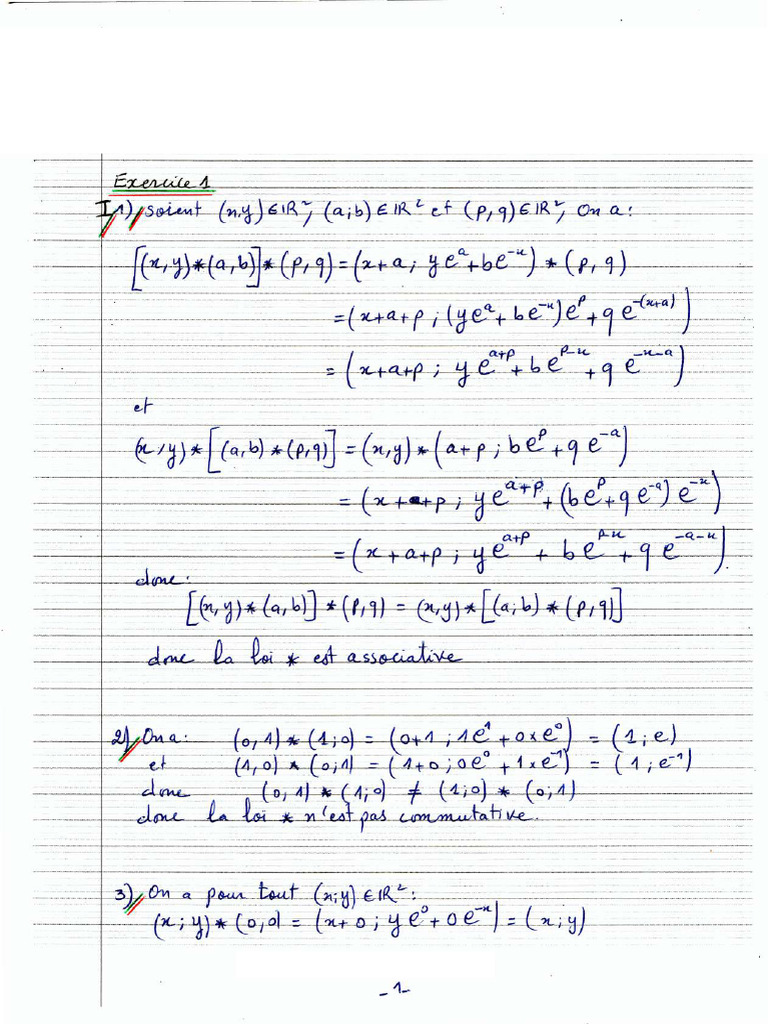 Exercice 1
I 1) soient (x,y) ∈ IR², (a;b) ∈ IR² et (p,q) ∈ IR², On a:
[(x,y)*(a,b)]*(p,q) = (x+a ; ye^a + be^-x) * (p,q)
= (x+a+p ; (ye^a + be^-x)e^p + qe^-(x+a))
= (x+a+p ; ye^a+p + be^p-x + qe^-x-a)
et
(x,y)*[(a,b)*(p,q)] = (x,y)*(a+p ; be^p + qe^-a)
= (x+a+p ; ye^a+p + (be^p + qe^-a)e^-x)
= (x+a+p ; ye^a+p + be^p-x + qe^-a-x)
donc:
[(x,y)*(a,b)]*(p,q) = (x,y)*[(a;b)*(p,q)]
donc la loi * est associative
2) On a: (0,1)*(1;0) = (0+1 ; 1e^1 + 0×e^0) = (1;e)
et (1,0)*(0;1) = (1+0 ; 0e^0 + 1×e^-1) = (1;e^-1)
donc (0,1)*(1;0) ≠ (1;0)*(0;1)
donc la loi * n'est pas commutative.
3) On a pour tout (x;y) ∈ IR²:
(x;y)*(0,0) = (x+0 ; ye^0 + 0e^-x) = (x;y)
-1-